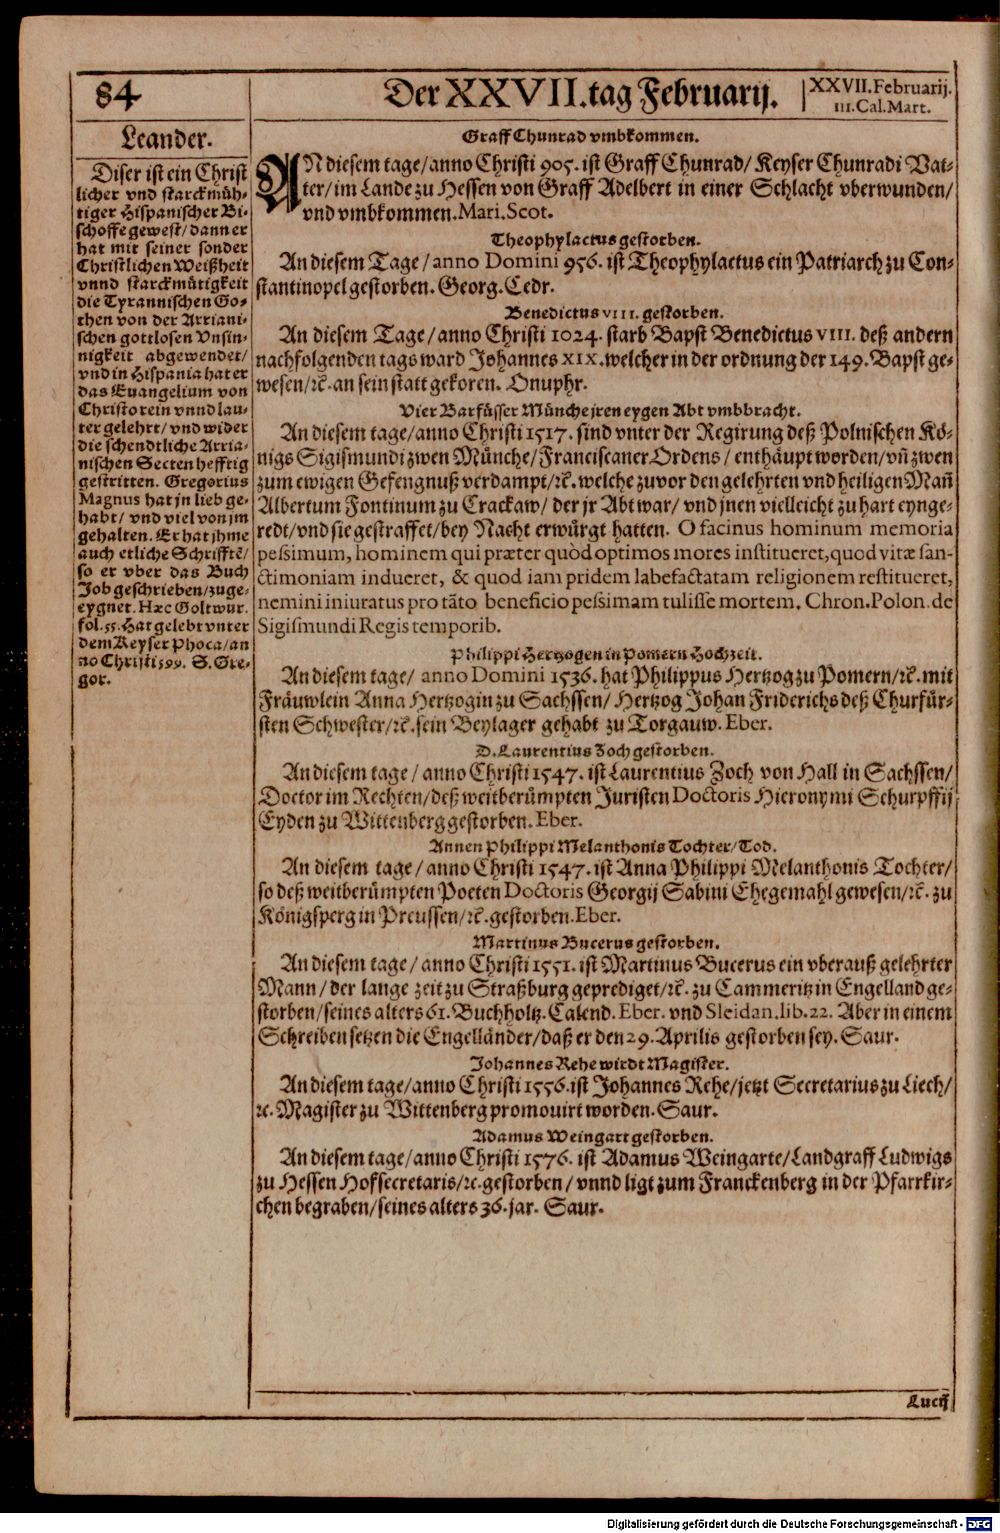 84
Der XXVII.tag Februarij.
XXVII.Februarij.
III.Cal.Mart.
Leander.
Diser ist ein Christ
licher vnd starckmüh-
tiger Hispanischer Bi-
schoffe gewest/ dann er
hat mit seiner sonder
Christlichen Weißheit
vnnd starckmütigkeit
die Tyrannischen Go-
then von der Arriani-
schen gottlosen Vnsin-
nigkeit abgewendet/
vnd in Hispania hat er
das Euangelium von
Christo rein vnnd lau-
ter gelehrt/ vnd wider
die schendtliche Arria-
nischen Secten hefftig
gestritten. Gregorius
Magnus hat jn lieb ge-
habt/ vnd viel von jm
gehalten. Er hat jhme
auch etliche Schrifftē/
so er vber das Buch
Job geschrieben/ zuge-
eygnet. Hæc Goltwur.
fol.55. Hat gelebt vnter
dem Keyser Phoca/ an
no Christi 599. S. Gre-
gor.
Graff Chunrad vmbkommen.
AN diesem tage/ anno Christi 905. ist Graff Chunrad/ Keyser Chunradi Vat-
ter/ im Lande zu Hessen von Graff Adelbert in einer Schlacht vberwunden/
vnd vmbkommen. Mari. Scot.
Theophylactus gestorben.
An diesem Tage/ anno Domini 956. ist Theophylactus ein Patriarch zu Con-
stantinopel gestorben. Georg. Cedr.
Benedictus VIII. gestorben.
An diesem Tage/ anno Christi 1024. starb Bapst Benedictus VIII. deß andern
nachfolgenden tags ward Johannes XIX. welcher in der ordnung der 149. Bapst ge-
wesen/ ꝛc̄. an sein statt gekoren. Onuphr.
Vier Barfüsser Münche jren eygen Abt vmbbracht.
An diesem tage/ anno Christi 1517. sind vnter der Regirung deß Polnischen Kö-
nigs Sigismundi zwen Münche/ Franciscaner Ordens/ enthäupt worden/ vñ zwen
zum ewigen Gefengnuß verdampt/ ꝛc̄. welche zuvor den gelehrten vnd heiligen Mañ
Albertum Fontinum zu Crackaw/ der jr Abt war/ vnd jnen vielleicht zu hart eynge-
redt/ vnd sie gestraffet/ bey Nacht erwürgt hatten. O facinus hominum memoria
peſsimum, hominem qui præter quòd optimos mores inſtitueret, quod vitæ ſan-
ctimoniam indueret, & quod iam pridem labefactatam religionem reſtitueret,
nemini iniuratus pro tāto beneficio peſsimam tuliſſe mortem. Chron. Polon. de
Sigiſmundi Regis temporib.
Philippi Hertzogen in Pomern Hochzeit.
An diesem tage/ anno Domini 1536. hat Philippus Hertzog zu Pomern/ ꝛc̄. mit
Fräuwlein Anna Hertzogin zu Sachssen/ Hertzog Johan Friderichs deß Churfür-
sten Schwester/ ꝛc̄. sein Beylager gehabt zu Torgauw. Eber.
D. Laurentius Zoch gestorben.
An diesem tage/ anno Christi 1547. ist Laurentius Zoch von Hall in Sachssen/
Doctor im Rechten/ deß weitberümpten Juristen Doctoris Hieronymi Schurpffij
Eyden zu Wittenberg gestorben. Eber.
Annen Philippi Melanthonis Tochter/ Tod.
An diesem tage/ anno Christi 1547. ist Anna Philippi Melanthonis Tochter/
so deß weitberümpten Poeten Doctoris Georgij Sabini Ehegemahl gewesen/ ꝛc̄. zu
Königsperg in Preussen/ ꝛc̄. gestorben. Eber.
Martinus Bucerus gestorben.
An diesem tage/ anno Christi 1551. ist Martinus Bucerus ein vberauß gelehrter
Mann/ der lange zeit zu Straßburg geprediget/ ꝛc̄. zu Cammeritz in Engelland ge-
storben/ seines alters 61. Buchholtz. Calend. Eber. vnd Sleidan. lib. 22. Aber in einem
Schreiben setzen die Engelländer/ daß er den 29. Aprilis gestorben sey. Saur.
Johannes Rehe wirdt Magister.
An diesem tage/ anno Christi 1556. ist Johannes Rehe/ jetzt Secretarius zu Liech/
ꝛc. Magister zu Wittenberg promouirt worden. Saur.
Adamus Weingart gestorben.
An diesem tage/ anno Christi 1576. ist Adamus Weingarte/ Landgraff Ludwigs
zu Hessen Hofsecretaris/ ꝛc. gestorben/ vnnd ligt zum Franckenberg in der Pfarrkir-
chen begraben/ seines alters 36. jar. Saur.
Lucij
Digitalisierung gefördert durch die Deutsche Forschungsgemeinschaft - DFG